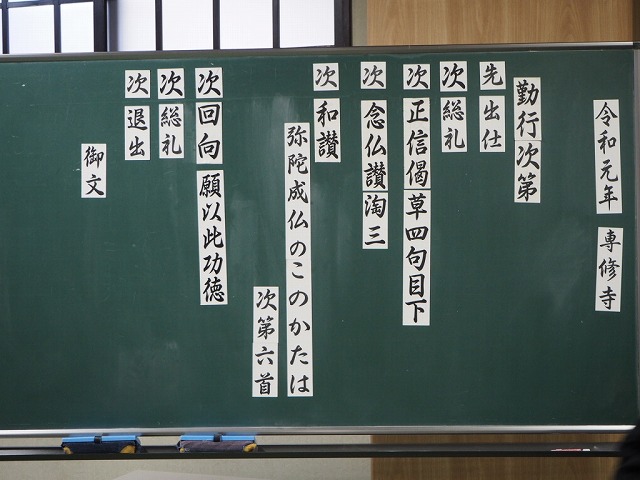 令和元年 専修寺
勤行次第
先 出仕
次 総礼
次 正信偈 草四句目下
次 念仏讃 淘三
次 和讃
弥陀成仏のこのかたは
次第六首
次 回向 願以此功徳
次 総礼
次 退出
御文